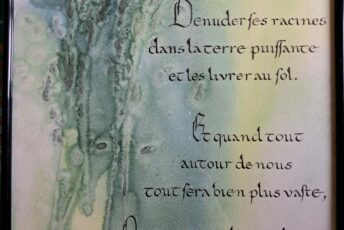 Denuder ses racines
dans la terre puissante
et les livrer au sol.
Et quand tout
autour de nous
tout sera bien plus vaste,